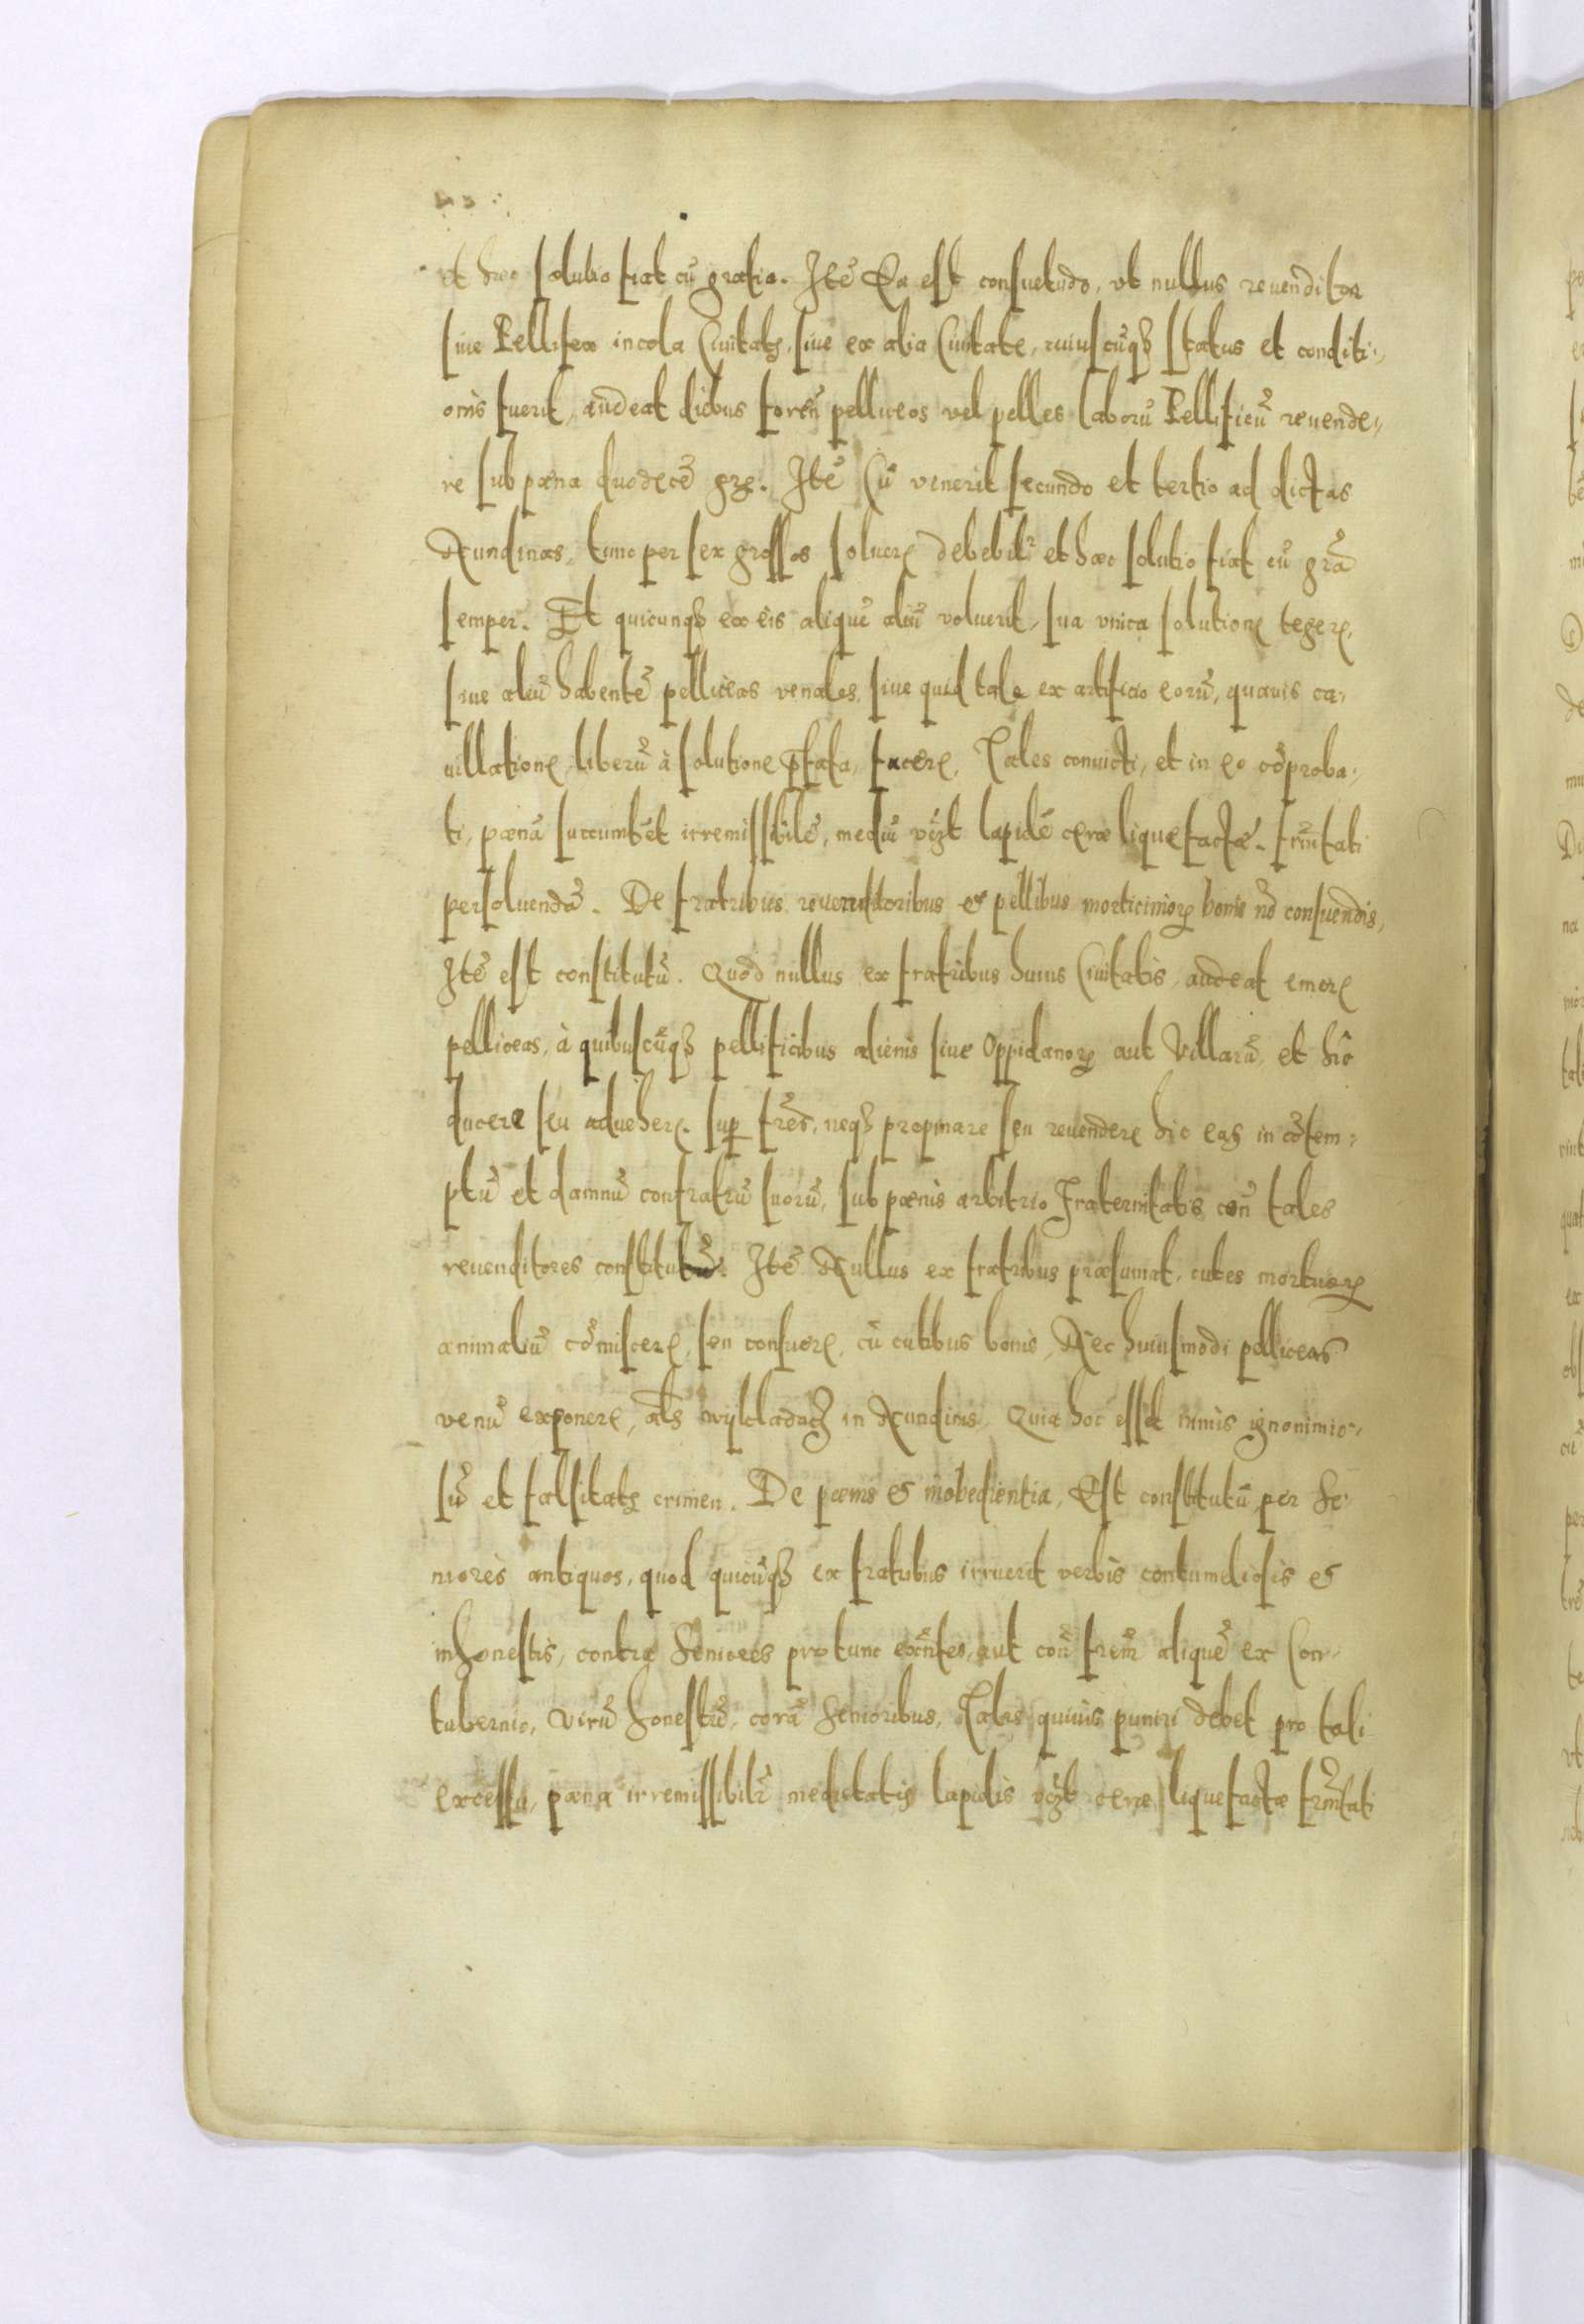 et hæc solutio fiat cũ gratia. Itẽ Ea est consuetudo, vt nullus reuenditor
siue Pellifex incola Ciuitatꝭ, siue ex alia Ciuitate, cuiuscũqꝫ status et conditi„
onis fuerit, audeat diebus foreñ pelliceos vel pelles laborũ Pellificũ reuende„
re sub pœna duodecẽ grꝭ. Itẽ Cũ venerit secundo et tertio ad dictas
Nundinas, tunc per sex grossos soluerꝭ debebit et hæc solutio fiat cũ grã
semper. Et quicunqꝫ ex eis aliquẽ aliũ voluerit, sua vnica solutionꝭ tegerꝭ,
siue aliũ habentẽ pelliceas venales, siue quid tale ex artificio eorũ, quauis ca„
uillationꝭ, liberũ à solutione p̃fata, facerꝭ, Tales conuicti, et in eo cõproba„
ti, pœnã succumbẽt irremissibilẽ, mediũ vꝫt lapidẽ ceræ liquefactæ. frñitati
persoluendã. De fratribus reuenditoribus et pellibus morticiniorꝝ bonis nõ consuendis,
Itẽ est constitutũ. Quod nullus ex fratribus huius Ciuitatis, audeat emerꝭ
pelliceas, à quibuscũqꝫ pellificibus alienis siue Oppidanorꝝ aut Villarũ, et hîc
ducere seu adueherꝭ. suꝑ frẽs, neqꝫ propinare seu reuenderꝭ hic eas in cõtem„
ptũ et damnũ confratrũ suorũ, sub pœnis arbitrio Fraternitatis coñ tales
reuenditores constitutũ. Itẽ Nullus ex fratribus præsumat, cutes mortuorꝝ
animaliũ cõmiscerꝭ, seu consuerꝭ, cũ cutibus bonis, Nec huiusmodi pelliceas
venũ exponerꝭ, als wijkladacꝫ in Nundinis. Quia hoc esset nimis ignominio„
sũ et falsitatꝭ crimen. De pœnis et inobedientia, Est constitutũ per Se„
niores antiquos, quod quicũqꝫ ex fratribus irruerit verbis contumeliosis et
inhonestis, contra Seniores protunc exñtes, aut coñ frem̃ aliquẽ ex Con„
tubernio, virũ honestũ, corã Senioribus, Talis quiuis puniri debet pro tali
excessu, pœna irremissibili medietatis lapidis vꝫt ceræ liquefactæ frñitati